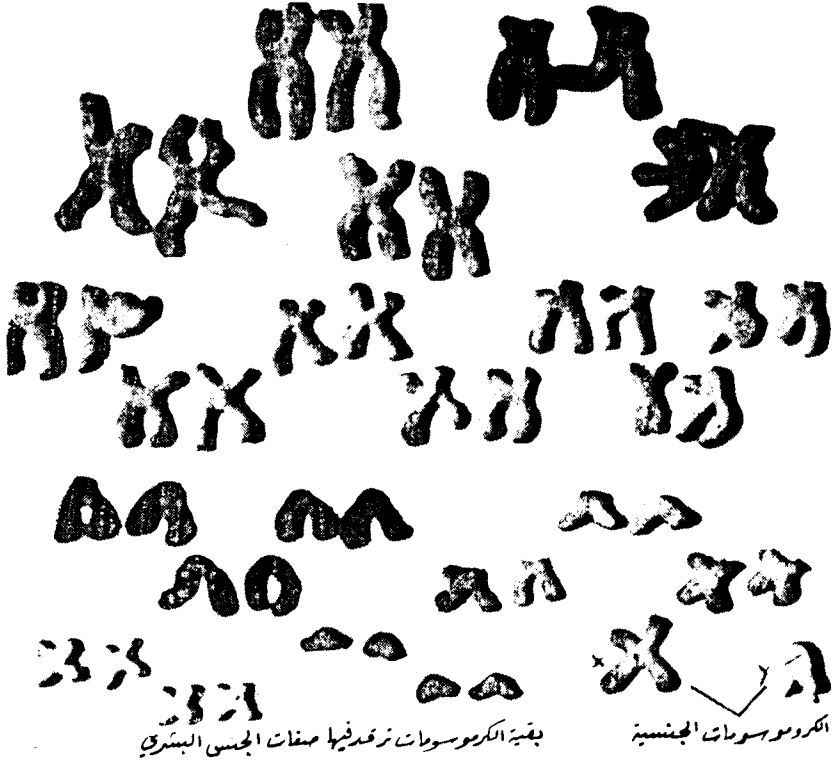 x
y
الكروموسومات الجنسية
بقية الكرموسومات ترقد فيها صفات الجنس البشري